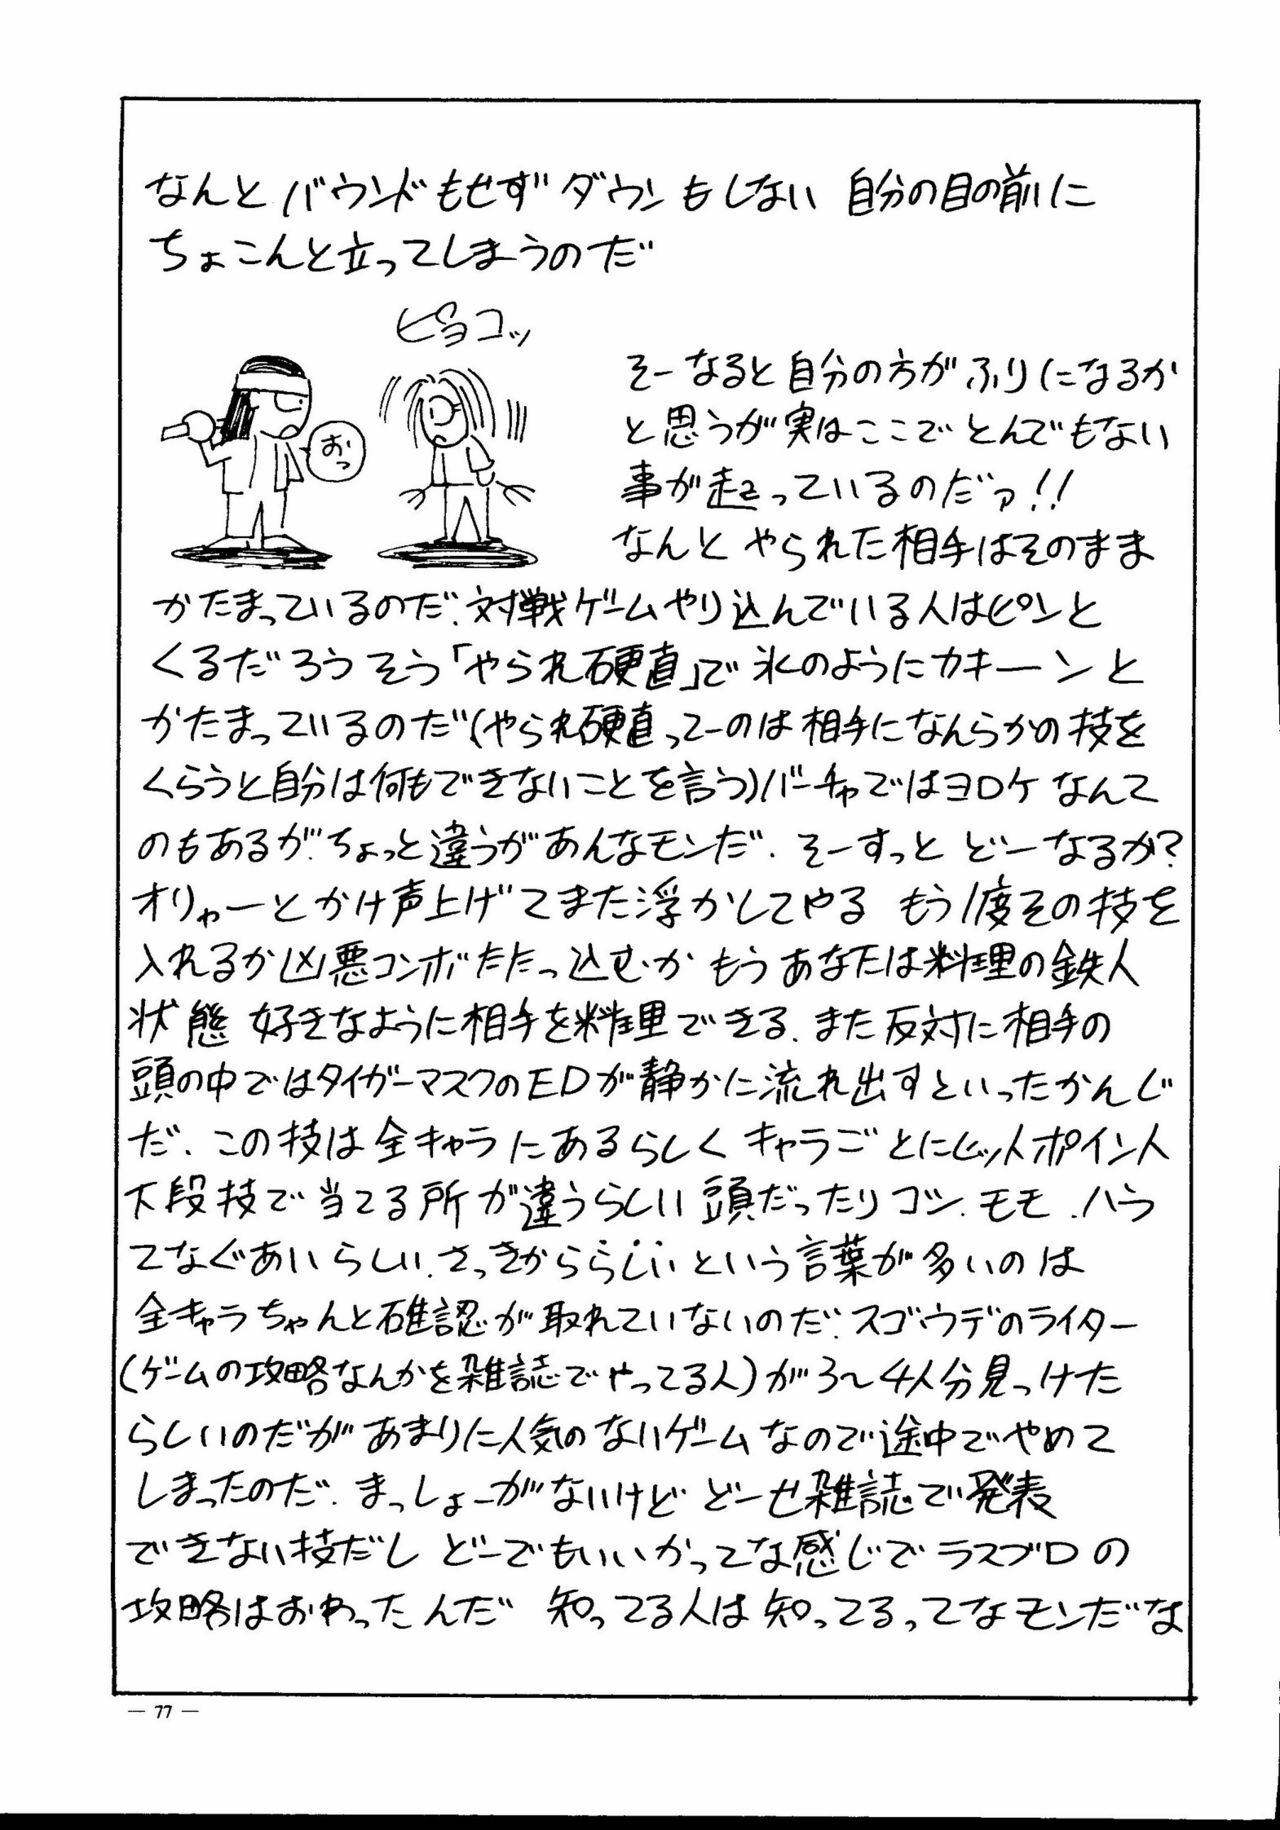 なんと バウンドもせず ダウンもしない 自分の目の前に
ちょこんと立ってしまうのだ
ピョコッ
おっ
そーなると自分の方が ふりになるか
と思うが実はここで とんでもない
事が起こっているのだァ!!
なんと やられた相手はそのまま
かたまっているのだ、対戦ゲームやり込んでいる人はピンと
くるだろう そう「やられ硬直」で 氷のようにカキーンと
かたまっているのだ(やられ硬直ってーのは相手になんらかの技を
くらうと自分は何もできないことを言う)バーチャではヨロケ なんて
のもあるが、ちょっと違うがあんなモンだ、そーすっと どーなるか?
オリャーとかけ声上げてまた浮かしてやる もう1度その技を
入れるか凶悪コンボたたっ込むか もうあなたは料理の鉄人
状態 好きなように相手を料理できる、また反対に相手の
頭の中ではタイガーマスクのEDが静かに流れ出すといったかんじ
だ、この技は全キャラにあるらしく キャラごとにヒットポイント
下段技で当てる所が違うらしい 頭だったりコシ、モモ、ハラ
てなぐあいらしい、さっきかららしいという言葉が多いのは
全キャラちゃんと確認が取れていないのだ、スゴウデのライター
(ゲームの攻略なんかを雑誌でやってる人)が3〜4人分見っけた
らしいのだがあまりに人気のないゲームなので途中でやめて
しまったのだ、まっしょーがないけど どーせ雑誌で発表
できない技だし どーでもいいかってな感じで ラスブロの
攻略はおわったんだ 知ってる人は知ってるってなモンだな
— 77 —